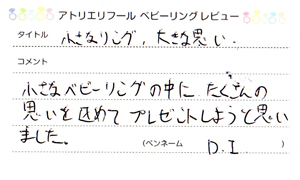 アトリエリフール ベビーリングレビュー
タイトル 小さなリング,大きな思い.
コメント
小さなベビーリングの中に たくさんの
思いを込めて プレゼントしようと思い
ました。
(ペンネーム D.I )